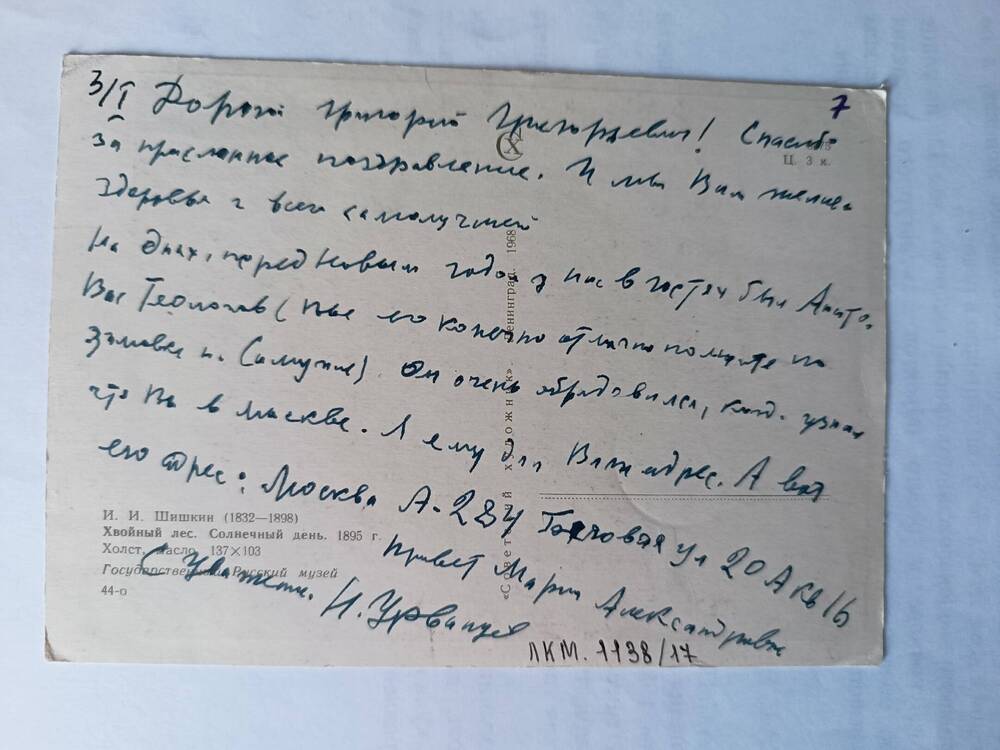 3/I Дорогой Григорий Григорьевич! Спасибо
7
за присланное поздравление. И мы Вам желаем
Ц. 3 к.
здоровья и всего самолучшей
На днях, перед Новым годом у нас в гостях был Анато.
Вас Теологов (Вы его конечно отлично помните по
Зимовке н. ). Он очень обрадовался, когд. узнал
что Вы в Москве. Я ему дал Ваш адрес. А вот
его адрес: Москва А-284 Беговая ул 20А кв 16
Привет Марии Александровне
С уважени. Н. Урванцев
И. И. Шишкин (1832—1898)
Хвойный лес. Солнечный день. 1895 г.
Холст, масло. 137×103
Государственный Русский музей
44-о
«Советский художник» Ленинград. 1968
СХ
ЛКМ. 1138/17